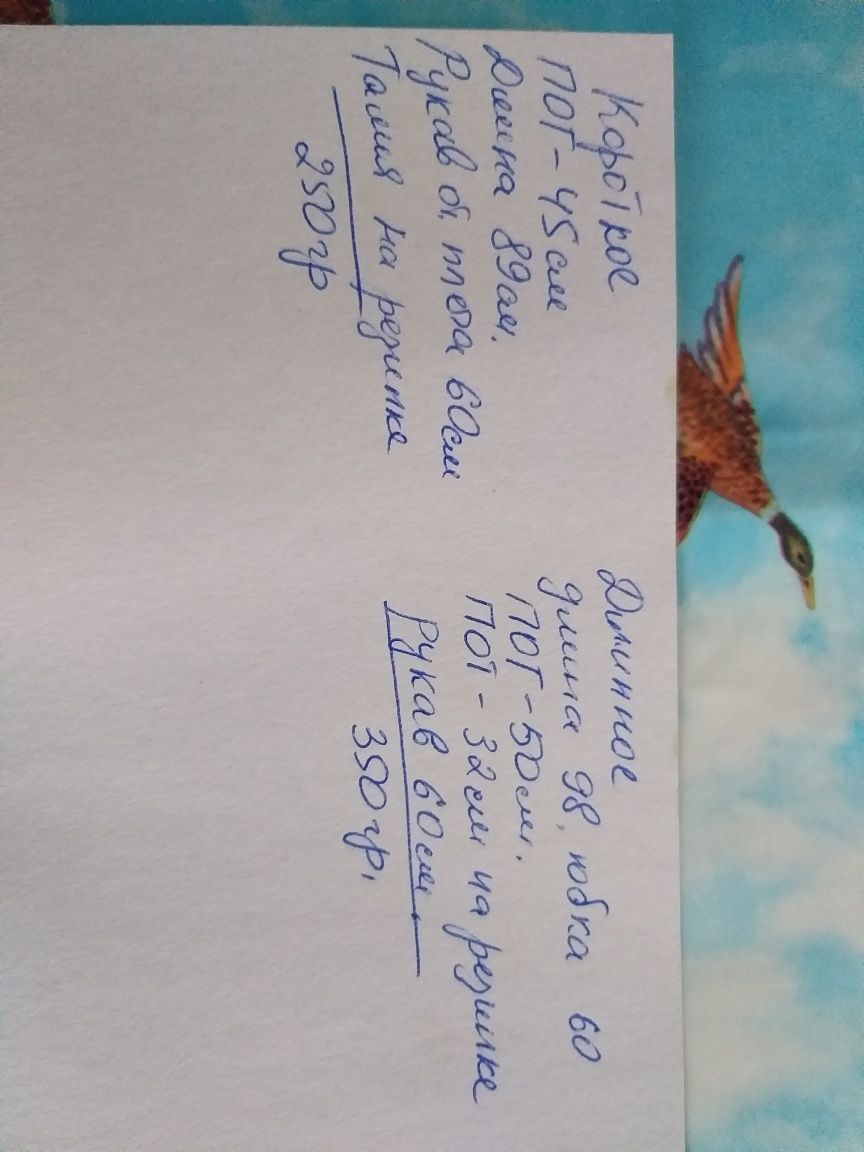 Короткое
ПОГ - 45 см
Длина 89 см.
Рукав от плеча 60 см
Талия на резинке
250 гр
Длинное
длина 98, юбка 60
ПОГ - 50 см.
ПОТ - 32 см на резинке
Рукав 60 см.
350 гр.